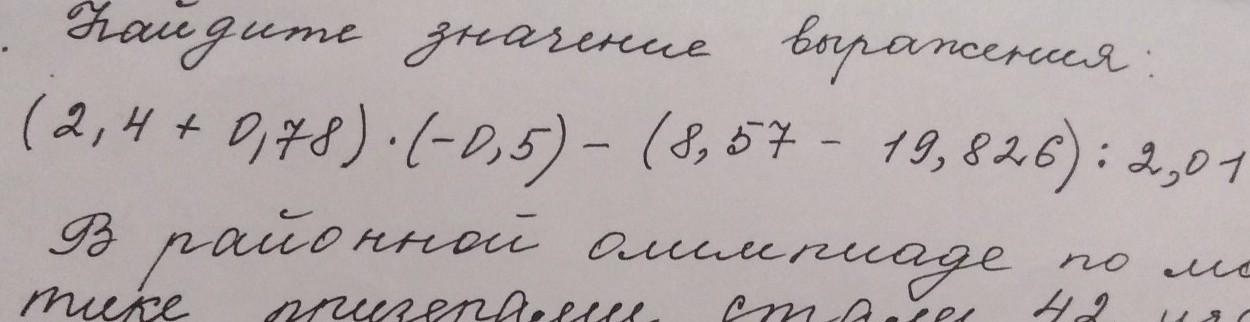 . Найдите значение выражения:
(2,4 + 0,78) · (-0,5) - (8,57 - 19,826) : 2,01
В районной олимпиаде по ма
тике призерами стали 42